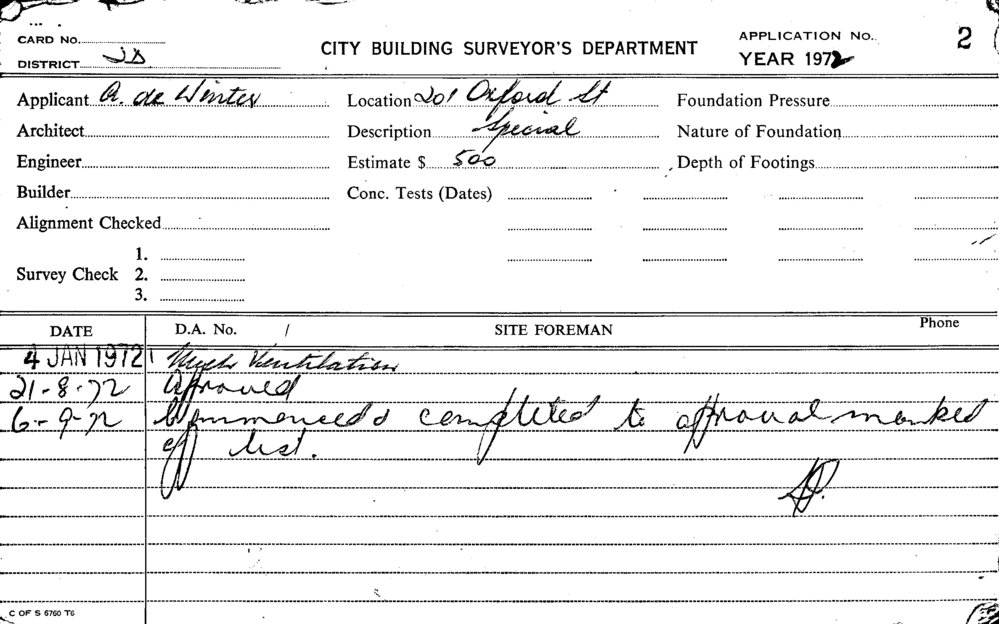 CARD No.
DISTRICT
CITY BUILDING SURVEYOR'S DEPARTMENT
APPLICATION No. 2
YEAR 1972
Applicant A. de Winter
Location 201 Oxford St
Foundation Pressure
Architect
Description Special
Nature of Foundation
Engineer
Estimate $ 500
Depth of Footings
Builder
Conc. Tests (Dates)
Alignment Checked
1.
Survey Check 2.
3.
DATE D.A. No. SITE FOREMAN Phone
4 JAN 1972 Mech Ventilation
21-8-72 Approved
6-9-72 Commenced & completed to approval marked
off list.
C OF S 6760 T6